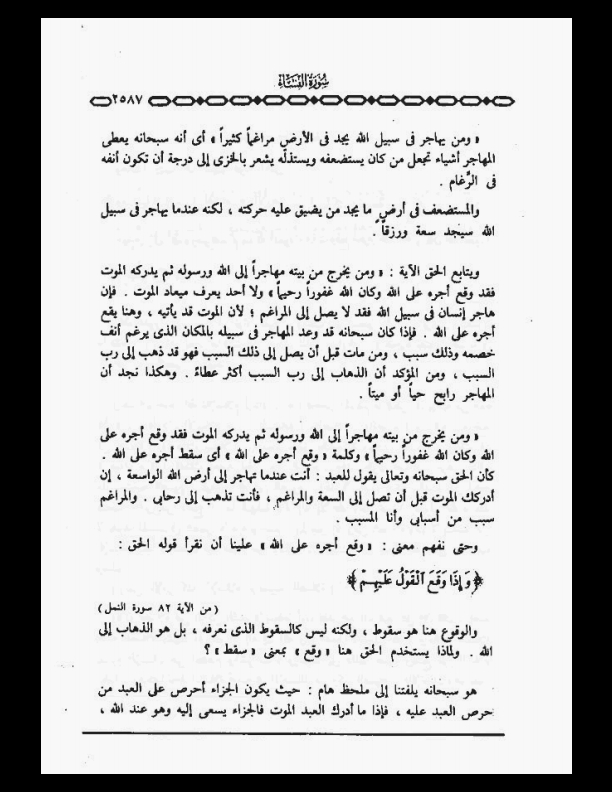 سُورَةُ النِّسَاءِ
٢٥٨٧
« ومن يهاجر فى سبيل الله يجد فى الأرض مراغماً كثيراً » أى أنه سبحانه يعطى
المهاجر أشياء تجعل من كان يستضعفه ويستذلّه يشعر بالخزى إلى درجة أن تكون أنفه
فى الرَّغام .
والمستضعف فى أرض ما يجد من يضيق عليه حركته ، لكنه عندما يهاجر فى سبيل
الله سيجد سعة ورزقاً .
ويتابع الحق الآية : « ومن يخرج من بيته مهاجراً إلى الله ورسوله ثم يدركه الموت
فقد وقع أجره على الله وكان الله غفوراً رحيماً » ولا أحد يعرف ميعاد الموت . فإن
هاجر إنسان فى سبيل الله فقد لا يصل إلى المراغم ؛ لأن الموت قد يأتيه ، وهنا يقع
أجره على الله . فإذا كان سبحانه قد وعد المهاجر فى سبيله بالمكان الذى يرغم أنف
خصمه وذلك سبب ، ومن مات قبل أن يصل إلى ذلك السبب فهو قد ذهب إلى رب
السبب ، ومن المؤكد أن الذهاب إلى رب السبب أكثر عطاءً . وهكذا نجد أن
المهاجر رابح حياً أو ميتاً .
« ومن يخرج من بيته مهاجراً إلى الله ورسوله ثم يدركه الموت فقد وقع أجره على
الله وكان الله غفوراً رحيماً » وكلمة « وقع أجره على الله » أى سقط أجره على الله .
كأن الحق سبحانه وتعالى يقول للعبد : أنت عندما تهاجر إلى أرض الله الواسعة ، إن
أدركك الموت قبل أن تصل إلى السعة والمراغم ، فأنت تذهب إلى رحابى . والمراغم
سبب من أسبابى وأنا المسبب .
وحتى نفهم معنى : « وقع أجره على الله » علينا أن نقرأ قوله الحق :
﴿ وَإِذَا وَقَعَ ٱلْقَوْلُ عَلَيْهِمْ ﴾
( من الآية ٨٢ سورة النمل )
والوقوع هنا هو سقوط ، ولكنه ليس كالسقوط الذى نعرفه ، بل هو الذهاب إلى
الله . ولماذا يستخدم الحق هنا « وقع » بمعنى « سقط » ؟
هو سبحانه يلفتنا إلى ملحظ هام : حيث يكون الجزاء أحرص على العبد من
حرص العبد عليه ، فإذا ما أدرك العبد الموت فالجزاء يسعى إليه وهو عند الله ،